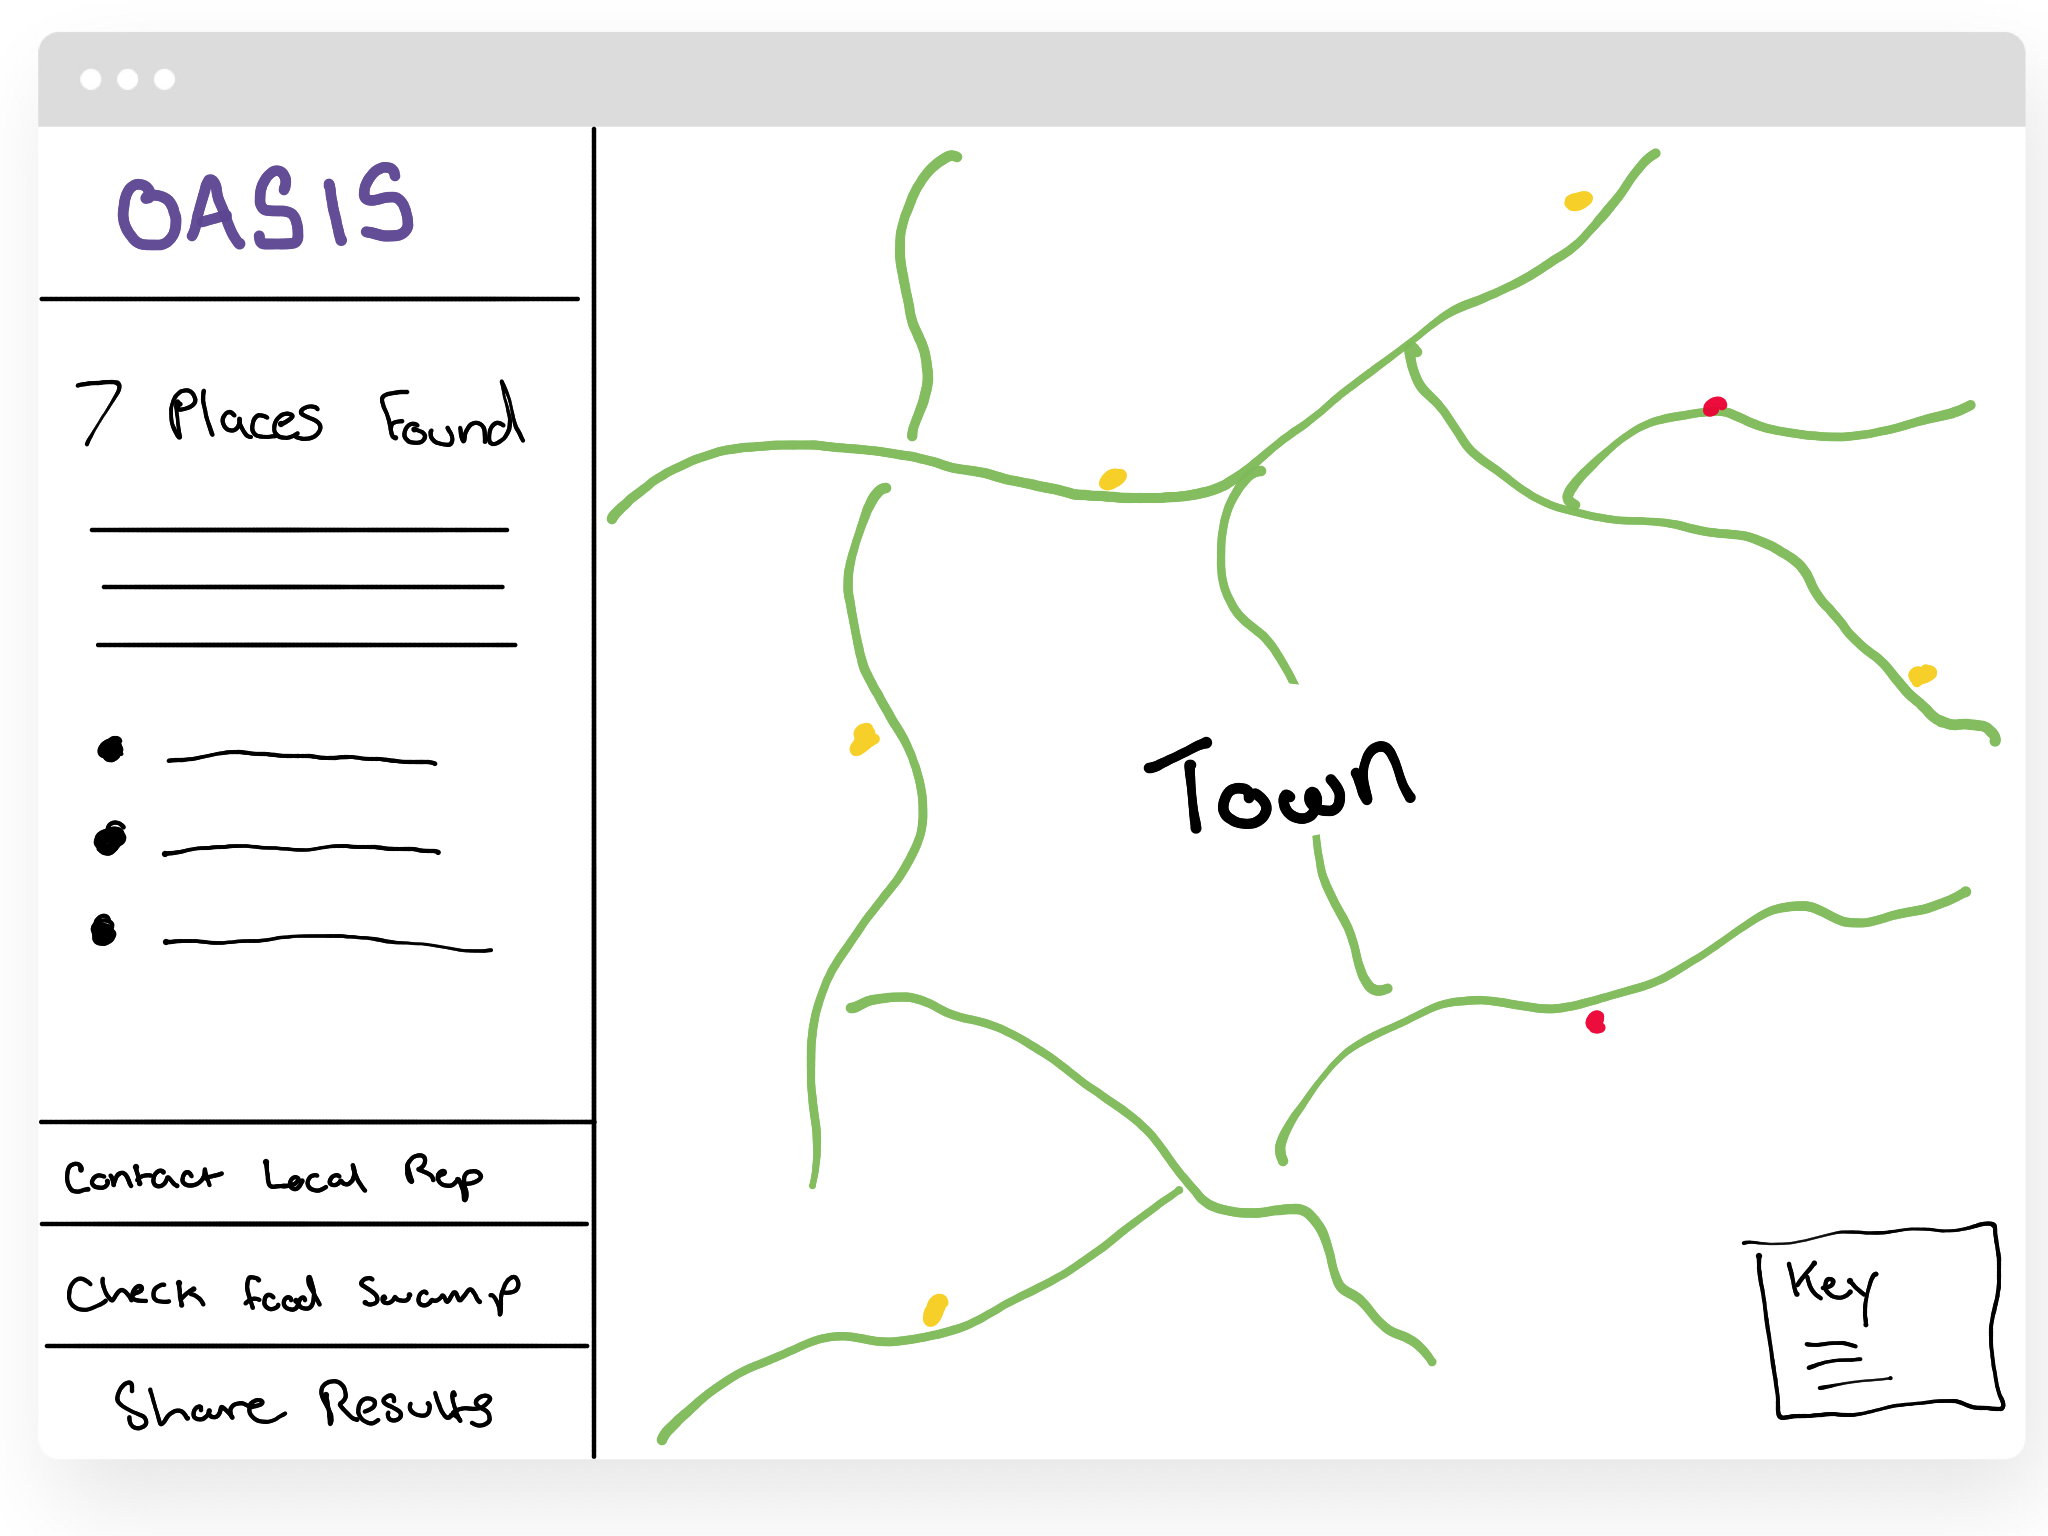 OASIS
7 Places Found
Contact Local Rep
Check Food Swamp
Share Results
Town
Key